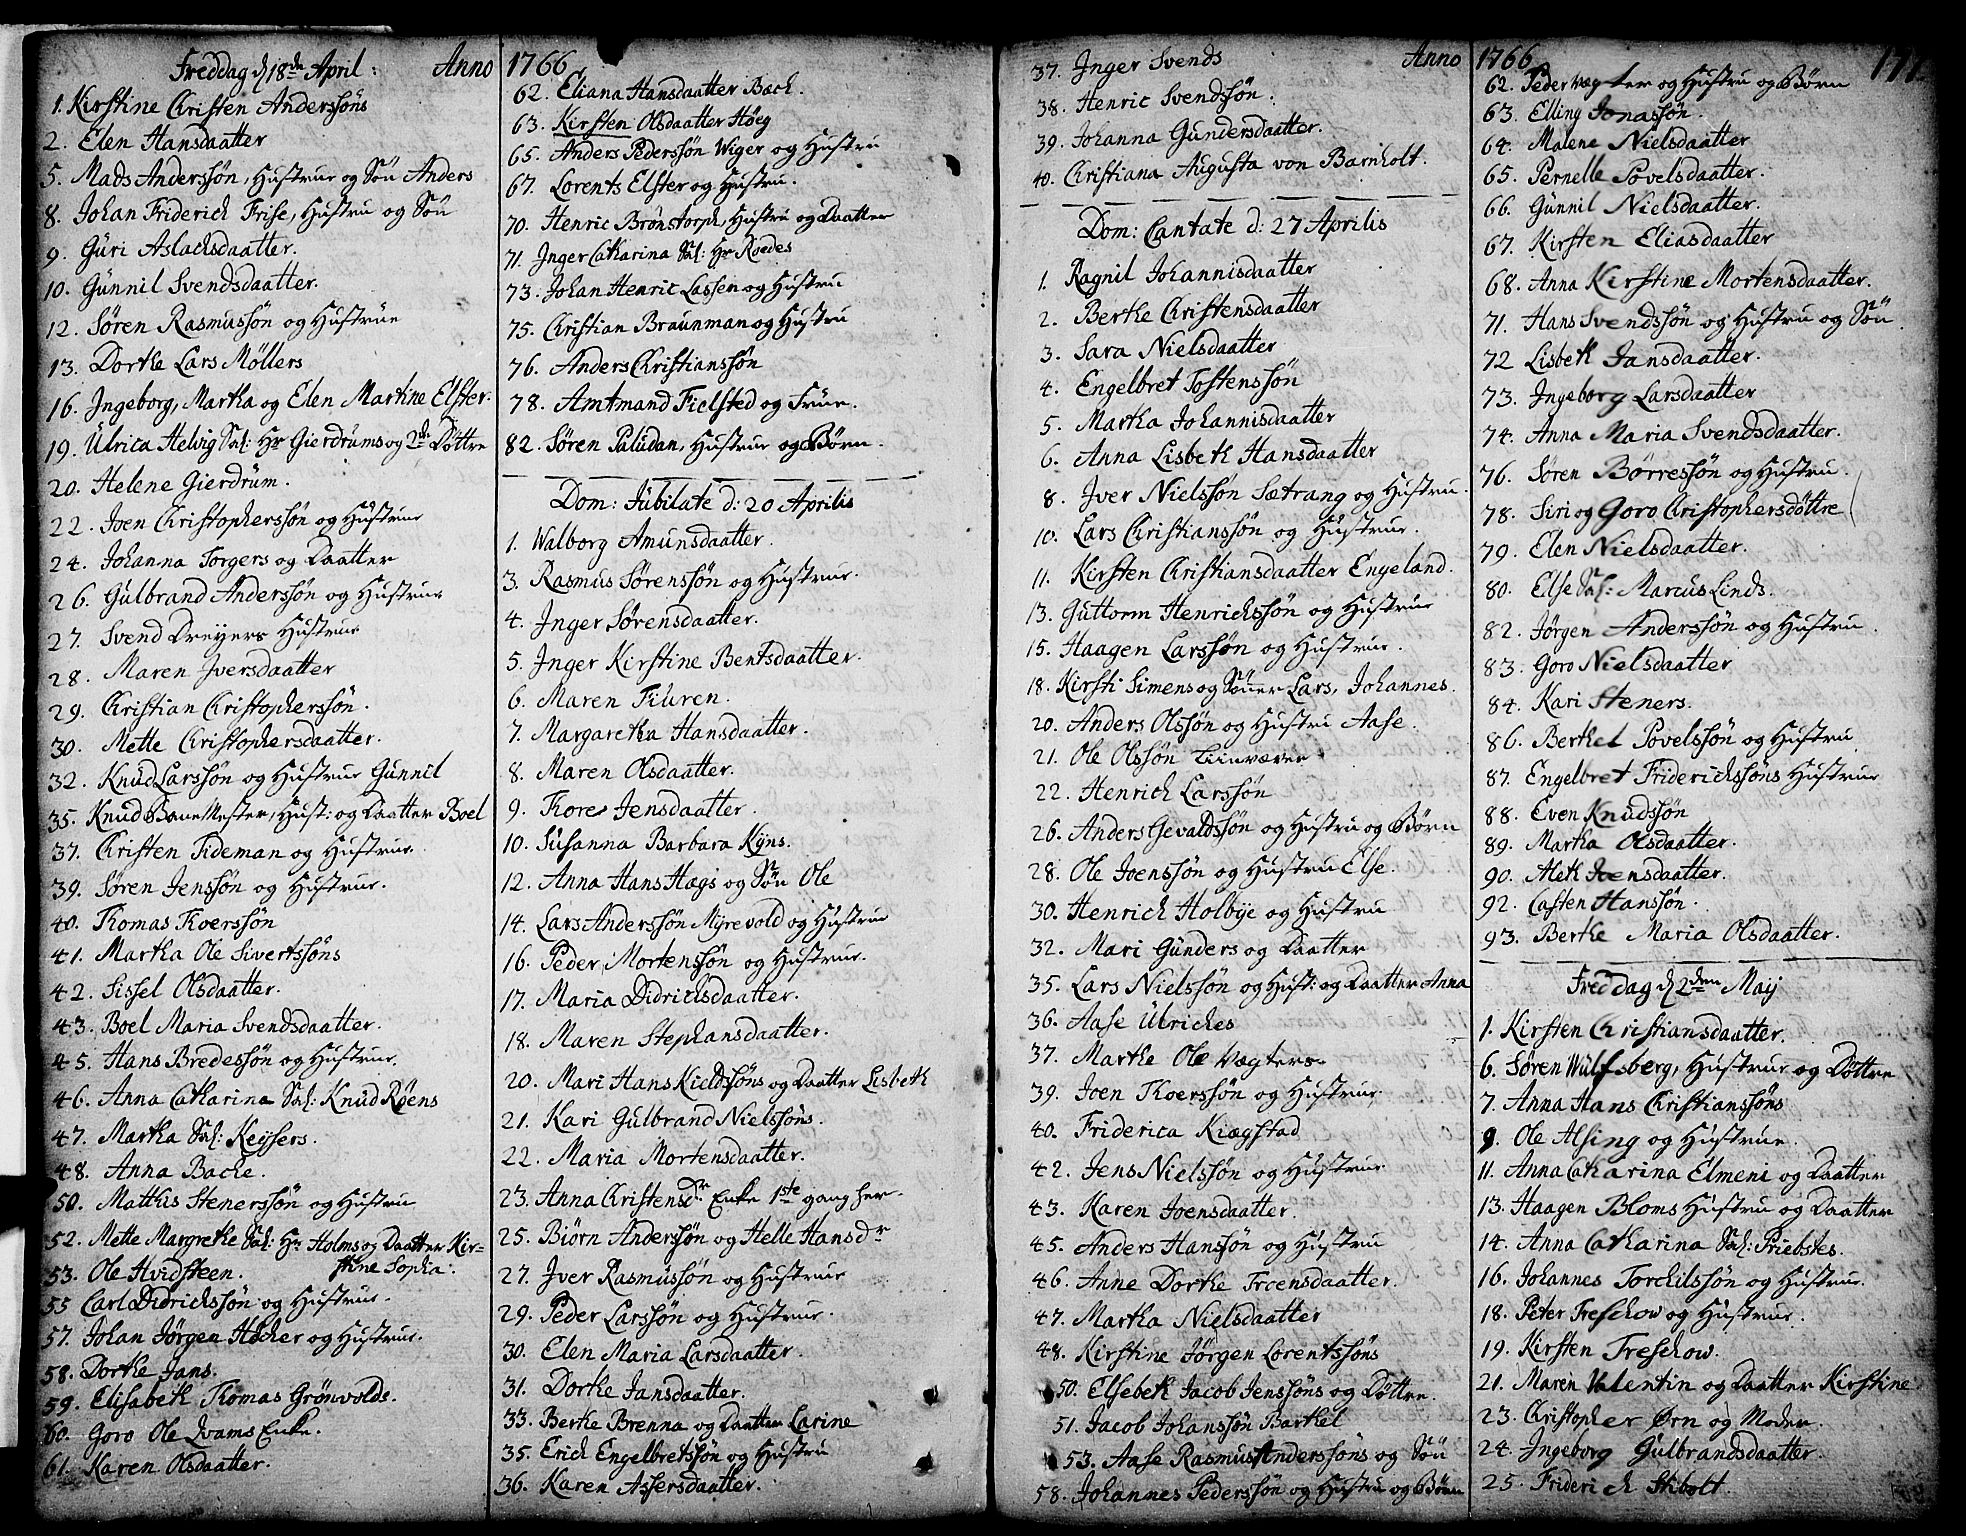 Freddag d 18de April: Anno
1. Kirstine Christen Anderssöns
2. Elen Hansdaatter
5. Mads Anderssön, Hustrue og Sön Anders
8. Johan Friderich Frise, Hustru og Sön
9. Guri Aslachsdaatter.
10. Gunnil Svendsdaatter.
12. Sören Rasmussön og Hustrue
13. Dorthe Lars Möllers
16. Ingeborg, Martha og Elen Martine Elster.
19. Ulrica Helvig Sal: Hr Gierdrums og 2de Döttre
20. Helene Gierdrum.
22. Joen Christopherssön og Hustrue
24. Johanna Torgers og Daatter
26. Gulbrand Anderssön og Hustrue
27. Svend Dreyers Hustrue
28. Maren Iversdaatter
29. Christian Christopherssön.
30. Mette Christophersdaatter.
32. Knud Larssön og Hustrue Gunnil
35. Knud BaneMester, Hust: og Daatter Boel
37. Christen Tideman og Hustrue
39. Sören Jenssön og Hustrue.
40. Thomas Thoerssön
41. Martha Ole Sivertssöns
42. Sissel Olsdaatter.
43. Boel Maria Svendsdaatter.
45. Hans Bredessön og Hustrue.
46. Anna Catharina Sal: Knud Röens
47. Martha Sal: Keysers.
48. Anna Bache.
50. Matthis Stenerssön og Hustru
52. Mette Margrethe Sal: Hr Holms og Daatter Kir=
stine Sophia.
53. Ole Hvidsteen.
55 Carl Didrichssön og Hustrue.
57. Johan Jörgen Höcher og Hustrue.
58. Dorthe Jans.
59. Elisabeth Thomas Grönvolds.
60. Goro Ole Qvams Enke.
61. Karen Olsdaatter.
1766
62. Eliana Hansdaatter Bach.
63. Kirsten Olsdaatter Höeg
65. Anders Pederssön Wiger og Hustru
67. Lorents Elster og Hustru.
70. Henric Brönstorph, Hustru og Daatter
71. Inger Catharina Sal: Hr Roedes
73. Johan Henric Lassen og Hustru
75. Christian Braunman og Hustru
76. Anders Christianssön
78. Amtmand Fielsted og Frue.
82. Sören Paludan, Hustrue og Börn.
Dom: Jubilate d: 20 Aprilis
1. Walborg Amunsdaatter.
3. Rasmus Sörenssön og Hustrue.
4. Inger Sörensdaatter.
5. Inger Kirstine Bentsdaatter.
6. Maren Fiuren.
7. Margaretha Hansdaatter.
8. Maren Olsdaatter.
9. Thore Jensdaatter.
10. Susanna Barbara Kyns.
12. Anna Hans Hægs og Sön Ole
14. Lars Anderssön Myrevold og Hustrue
16. Peder Mortenssön og Hustrue.
17. Maria Didrichsdaatter.
18. Maren Stephansdaatter.
20. Mari Hans Kieldssöns og Daatter Lisbeth
21. Kari Gulbrand Nielssöns.
22. Maria Mortensdaatter.
23. Anna Christensdr Enke 1ste gang her.
25. Biörn Anderssön og Helle Hansdr
27. Iver Rasmussön og Hustrue
29. Peder Larssön og Hustrue.
30. Elen Maria Larsdaatter.
31. Dorthe Jansdaatter.
33. Berthe Brenna og Daatter Larine
35. Erich Engelbretssön og Hustru
36. Karen Assersdaatter.
37. Inger Svends Anno
38. Henric Svendssön.
39. Johanna Gundersdaatter.
40. Christiana Augusta von Barnholt.
Dom: Cantate d: 27 Aprilis
1. Ragnil Johannisdaatter
2. Berthe Christensdaatter
3. Sara Nielsdaatter
4. Engelbret Tostenssön
5. Martha Johannisdaatter
6. Anna Lisbeth Hansdaatter
8. Iver Nielssön Sætrang og Hustru.
10. Lars Christianssön og Hustrue.
11. Kirsten Christiansdaatter Engeland.
13. Guttorm Henrichssön og Hustrue
15. Haagen Larssön og Hustrue.
18. Kirsti Simens og Sönner Lars, Johannes.
20. Anders Olssön og Hustru Aase.
21. Ole Olssön Liinvæver
22. Henrich Larssön
26. Anders Gevaldssön og Hustru og Börn
28. Ole Joenssön og Hustru Else.
30. Henrich Holbye og Hustru
32. Mari Gunders og Daatter
35. Lars Nielssön og Hust: og Daatter Anna
36. Aase Ulriches
37. Marthe Ole Vægters
39. Joen Thoerssön og Hustrue
40. Friderica Kiægstad
42. Jens Nielssön og Hustrue
43. Karen Joensdaatter.
45. Anders Hanssön og Hustru
46. Anne Dorthe Troensdaatter.
47. Martha Nielsdaatter
48. Kirstine Jörgen Lorentssöns
50. Elsebeth Jacob Jenssöns og Döttre.
51. Jacob Johanssön Barthel
53. Aase Rasmus Anderssöns og Sön
58. Johannes Pederssön og Hustru og Börn
1766 177
62. Peder Vægter og Hustru og Börn
63. Elling Jonassön.
64. Malene Nielsdaatter
65. Pernelle Povelsdaatter.
66. Gunnil Nielsdaatter.
67. Kirsten Eliasdaatter
68. Anna Kirstine Mortensdaatter.
71. Hans Svendssön og Hustru og Sön.
72 Lisbeth Jansdaatter.
73. Ingeborg Larsdaatter
74. Anna Maria Svendsdaatter.
76. Sören Börressön og Hustru.
78. Siri og Goro Christophersdöttre
79. Elen Nielsdaatter.
80. Else Sal: Marcus Linds.
82. Jörgen Anderssön og Hustru.
83. Goro Nielsdaatter
84. Kari Steners.
86. Berthel Povelssön og Hustru
87. Engelbret Friderichssöns Hustrue
88. Even Knudssön
89. Martha Olsdaatter.
90. Aleth Joensdaatter.
92. Casten Hanssön.
93. Berthe Maria Olsdaatter.
Freddag d 2den Maij
1. Kirsten Christiansdaatter.
6. Sören Wulfsberg, Hustrue og Döttre
7. Anna Hans Christianssöns
9. Ole Alsing og Hustrue.
11. Anna Catharina Elmeni og Daatter
13. Haagen Bloms Hustru og Daatter
14. Anna Catharina Sal: Priebstes.
16. Johannes Torchilssön og Hustrue.
18. Peter Treschow og Hustrue.
19. Kirsten Treschow.
21. Maren Valentin og Daatter Kirstine
23. Christopher Örn og Moder.
24. Ingeborg Gulbrandsdaatter.
25. Friderich Stibolt.